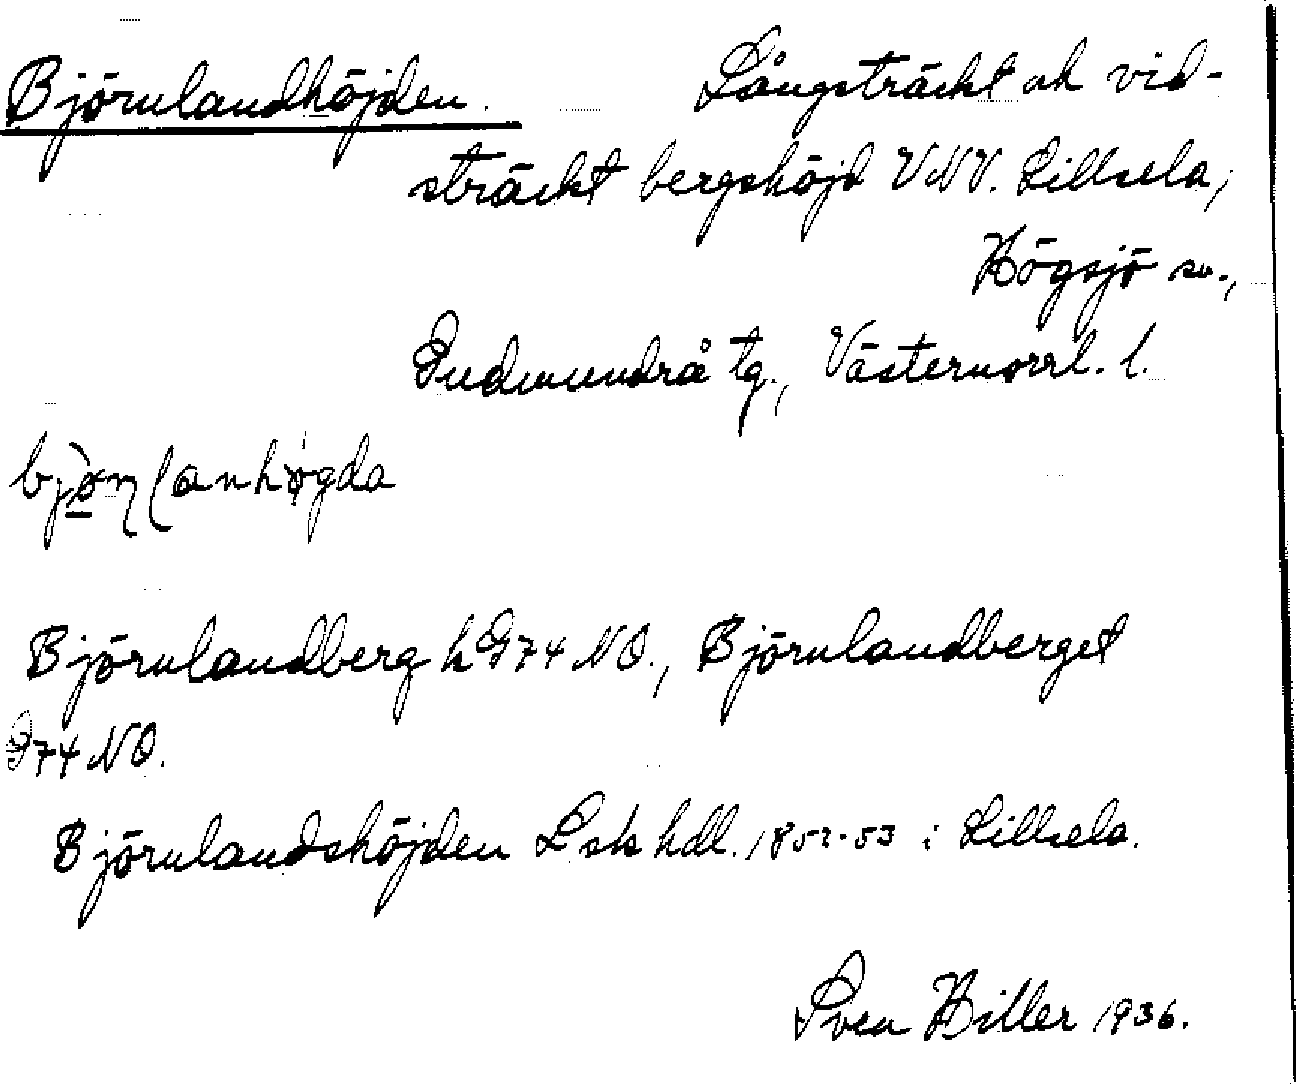 Björnlandhöjden. Långsträckt ock vid-
sträckt bergshöjd VNV. Lillsela,
Högsjö sn.,
Gudmundrå tg., Västernorrl. l.
Björnlandberg h G74 NO., Björnlandberget
G74 NO.
Björnlandshöjden Lsk hdl. 1852-53 i Lillsela.
Sven Hiller 1936.